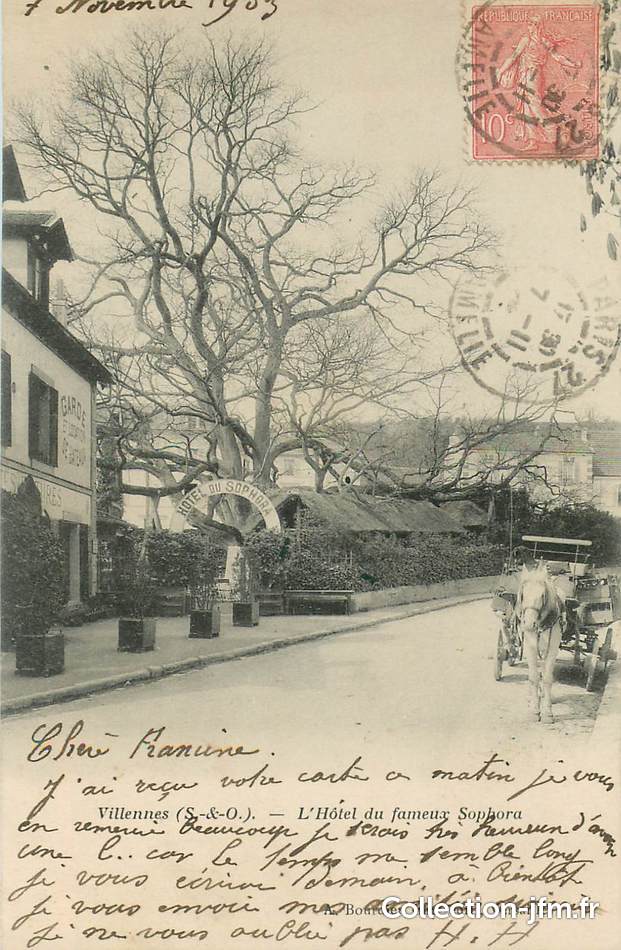 7 Novembre 1903
REPUBLIQUE FRANÇAISE
10c
POSTES
PARIS
7-11
GARDE
ET LOCATION
DE BATEAUX
HÔTEL DU SOPHORA
Chère Francine.
J'ai reçu votre carte ce matin je vous
Villennes (S.-&-O.). — L'Hôtel du fameux Sophora
en remercie beaucoup je serais très heureux d'avoir
une l.. car le temps me semble long
je vous écrirai demain, a bientôt
je vous envoie mes
A. Bour
Collection-jfm.fr
je ne vous oublie pas H. H.